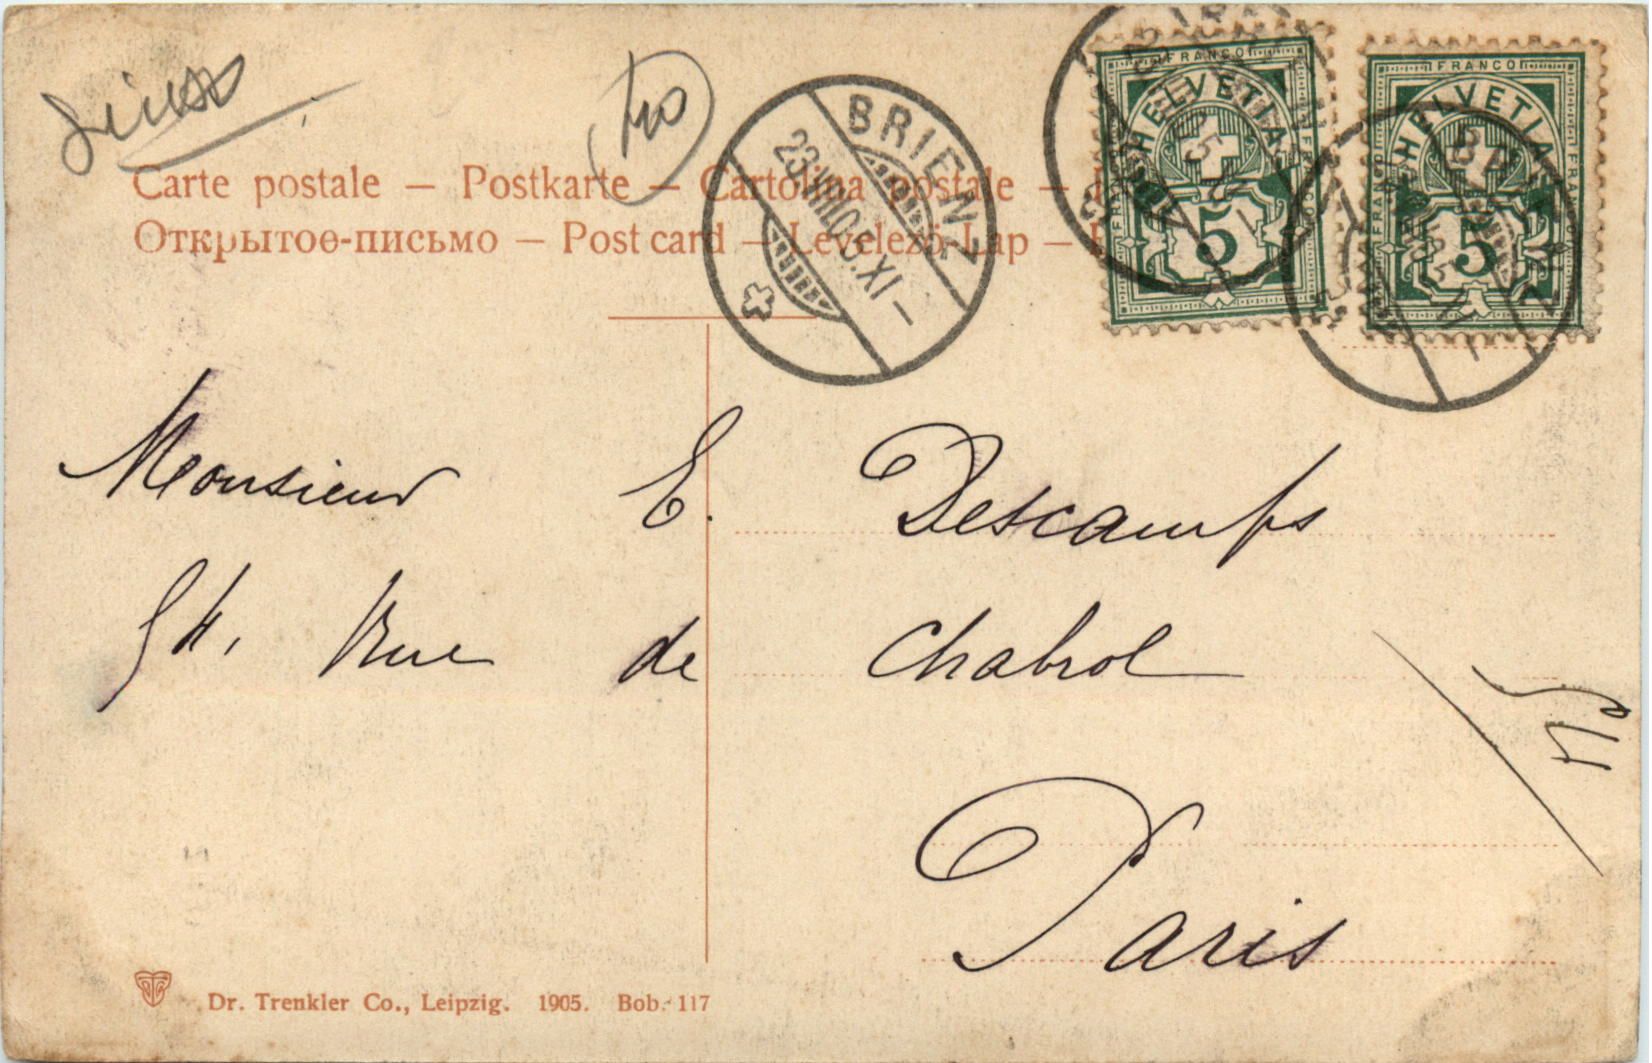 Suisse
10
Carte postale – Postkarte – Cartolina postale –
Открытое-письмо – Post card – Levelező-Lap –
BRIENZ
23.VIII.05.XI–
FRANCO
HELVETIA
5
FRANCO
HELVETIA
5
Monsieur E. Descamps
54, Rue de Chabrol
Paris
Dr. Trenkler Co., Leipzig. 1905. Bob. 117